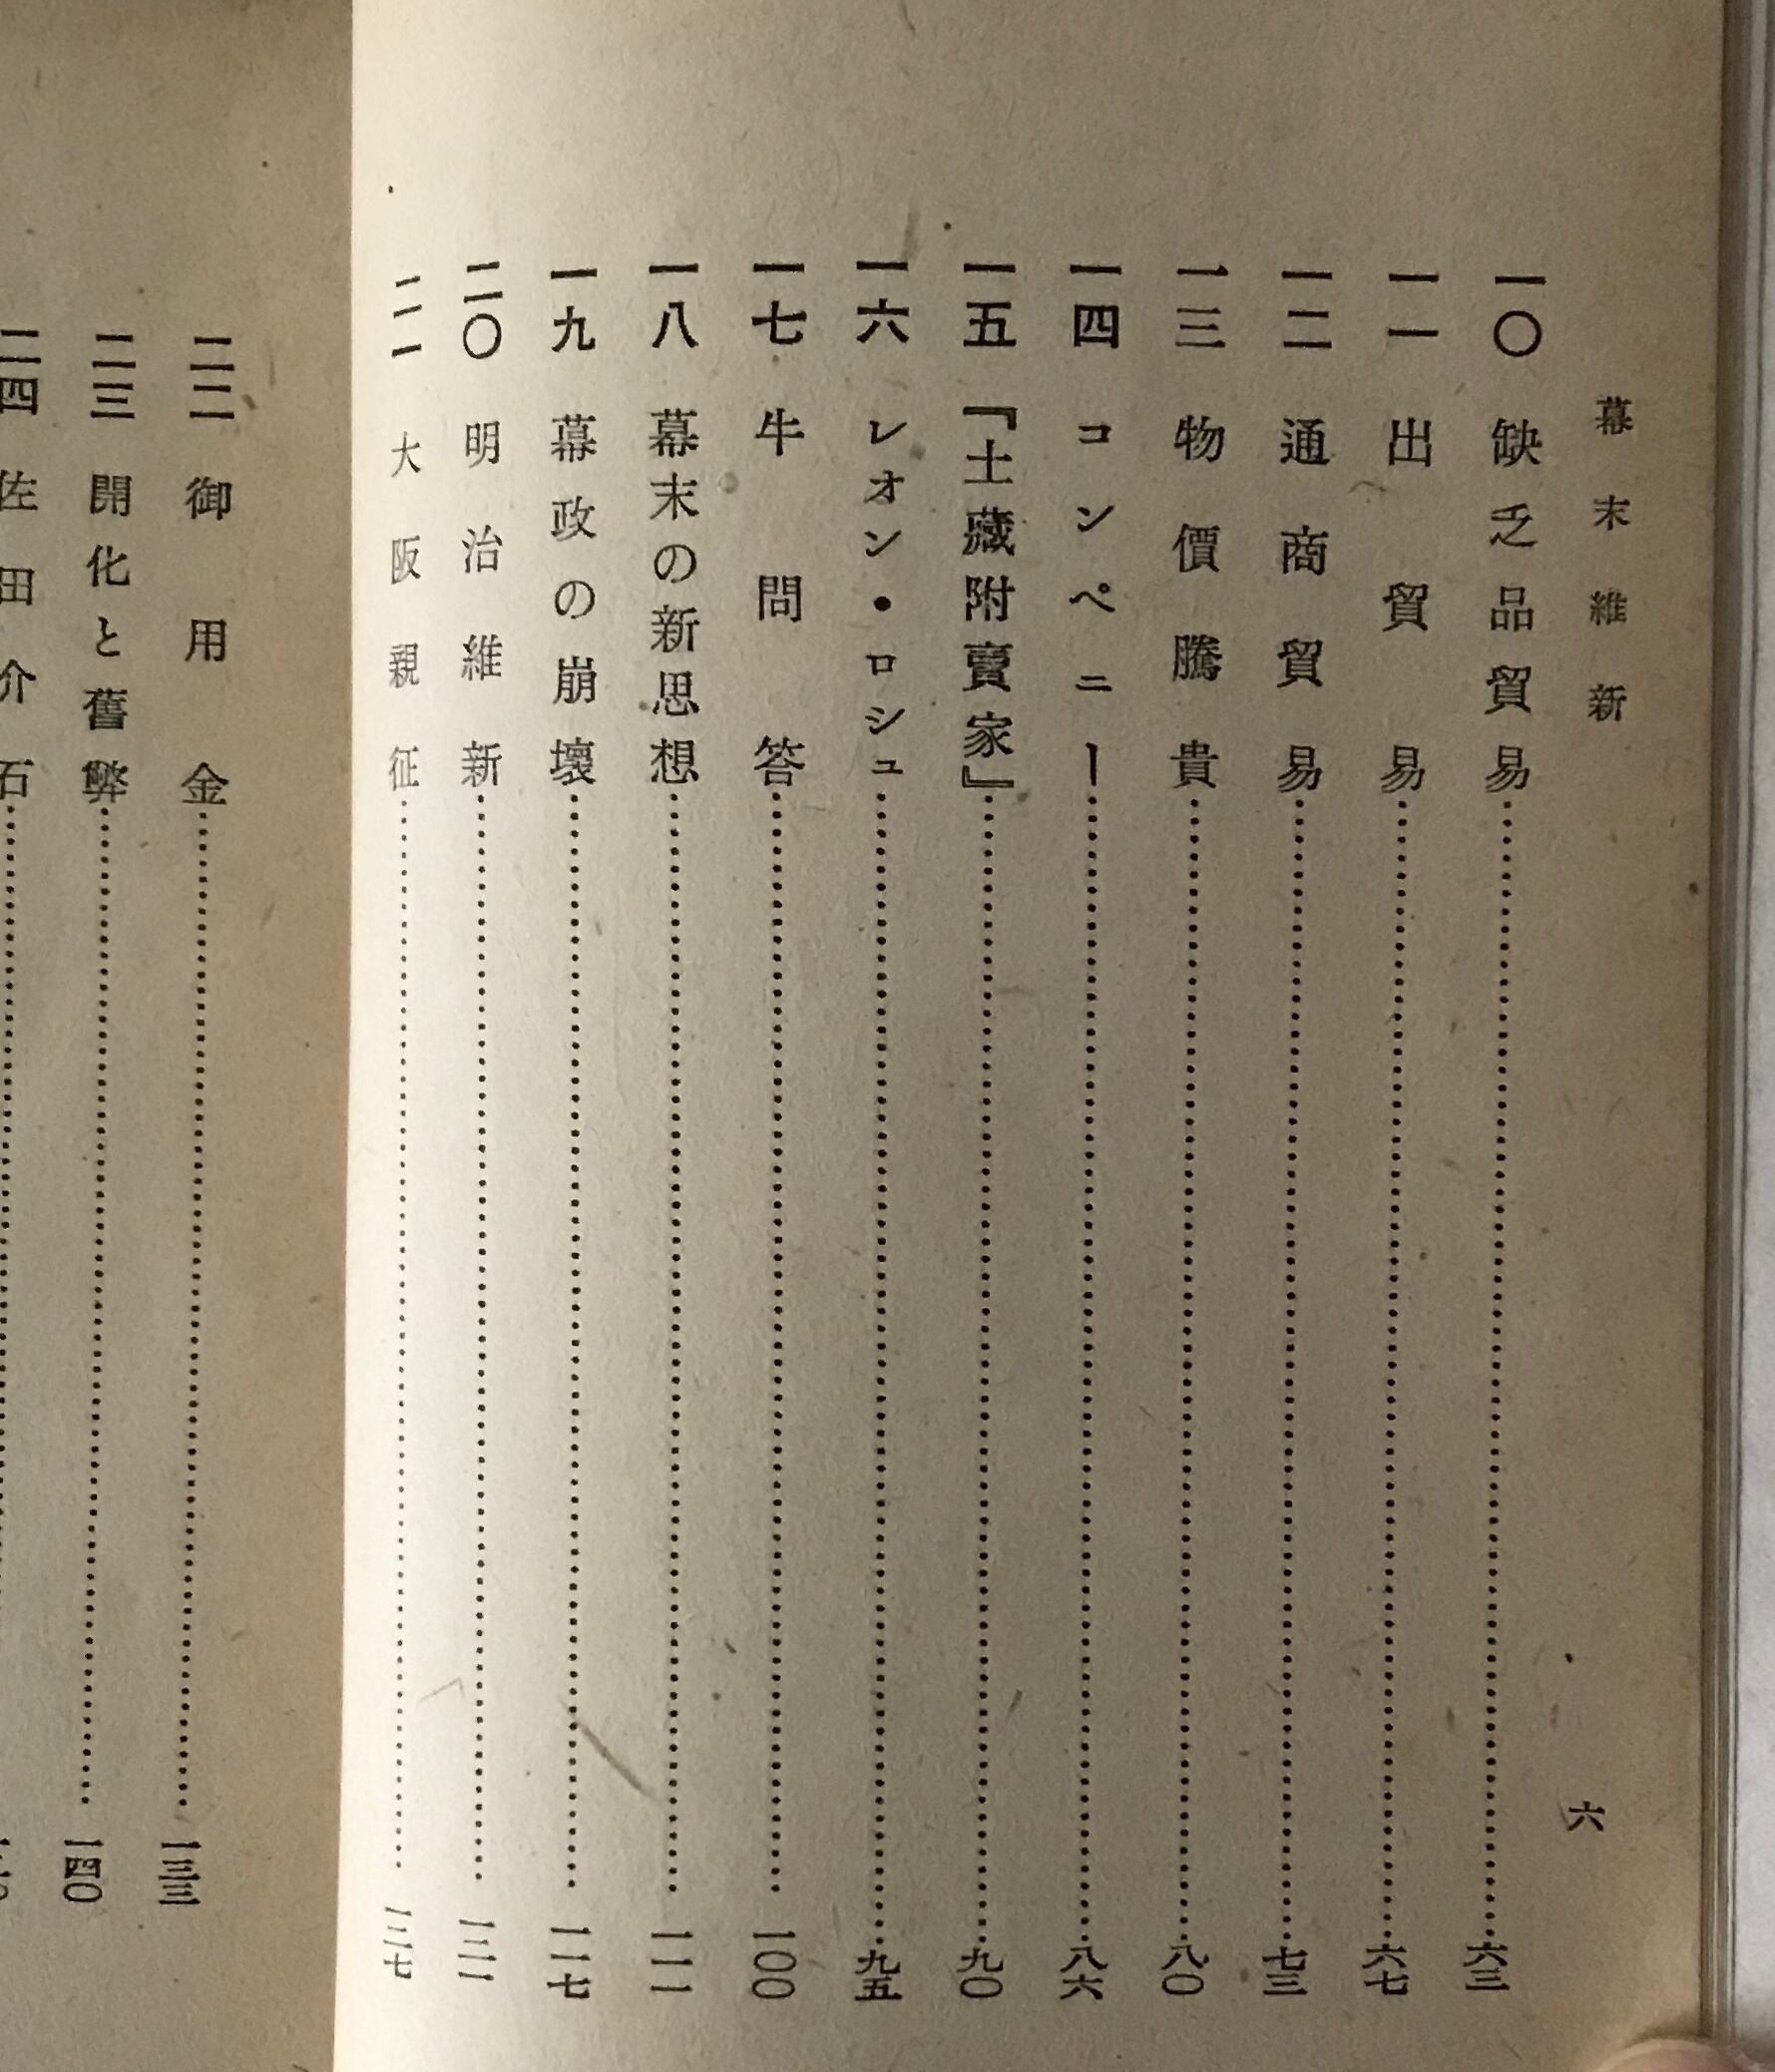 幕末維新
六
一〇 缺乏品貿易……六三
一一 出貿易……六七
一二 通商貿易……七三
一三 物價騰貴……八〇
一四 コンペニー……八六
一五 『土藏附賣家』……九〇
一六 レオン・ロシュ……九五
一七 牛問答……一〇〇
一八 幕末の新思想……一一一
一九 幕政の崩壞……一一七
二〇 明治維新……一二一
二一 大阪親征……一二七
二二 御用金……一三三
二三 開化と舊弊……一四〇
二四 佐田介石……